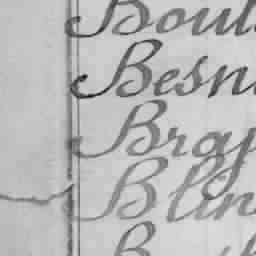 Boul
Besn
Bray
Blin